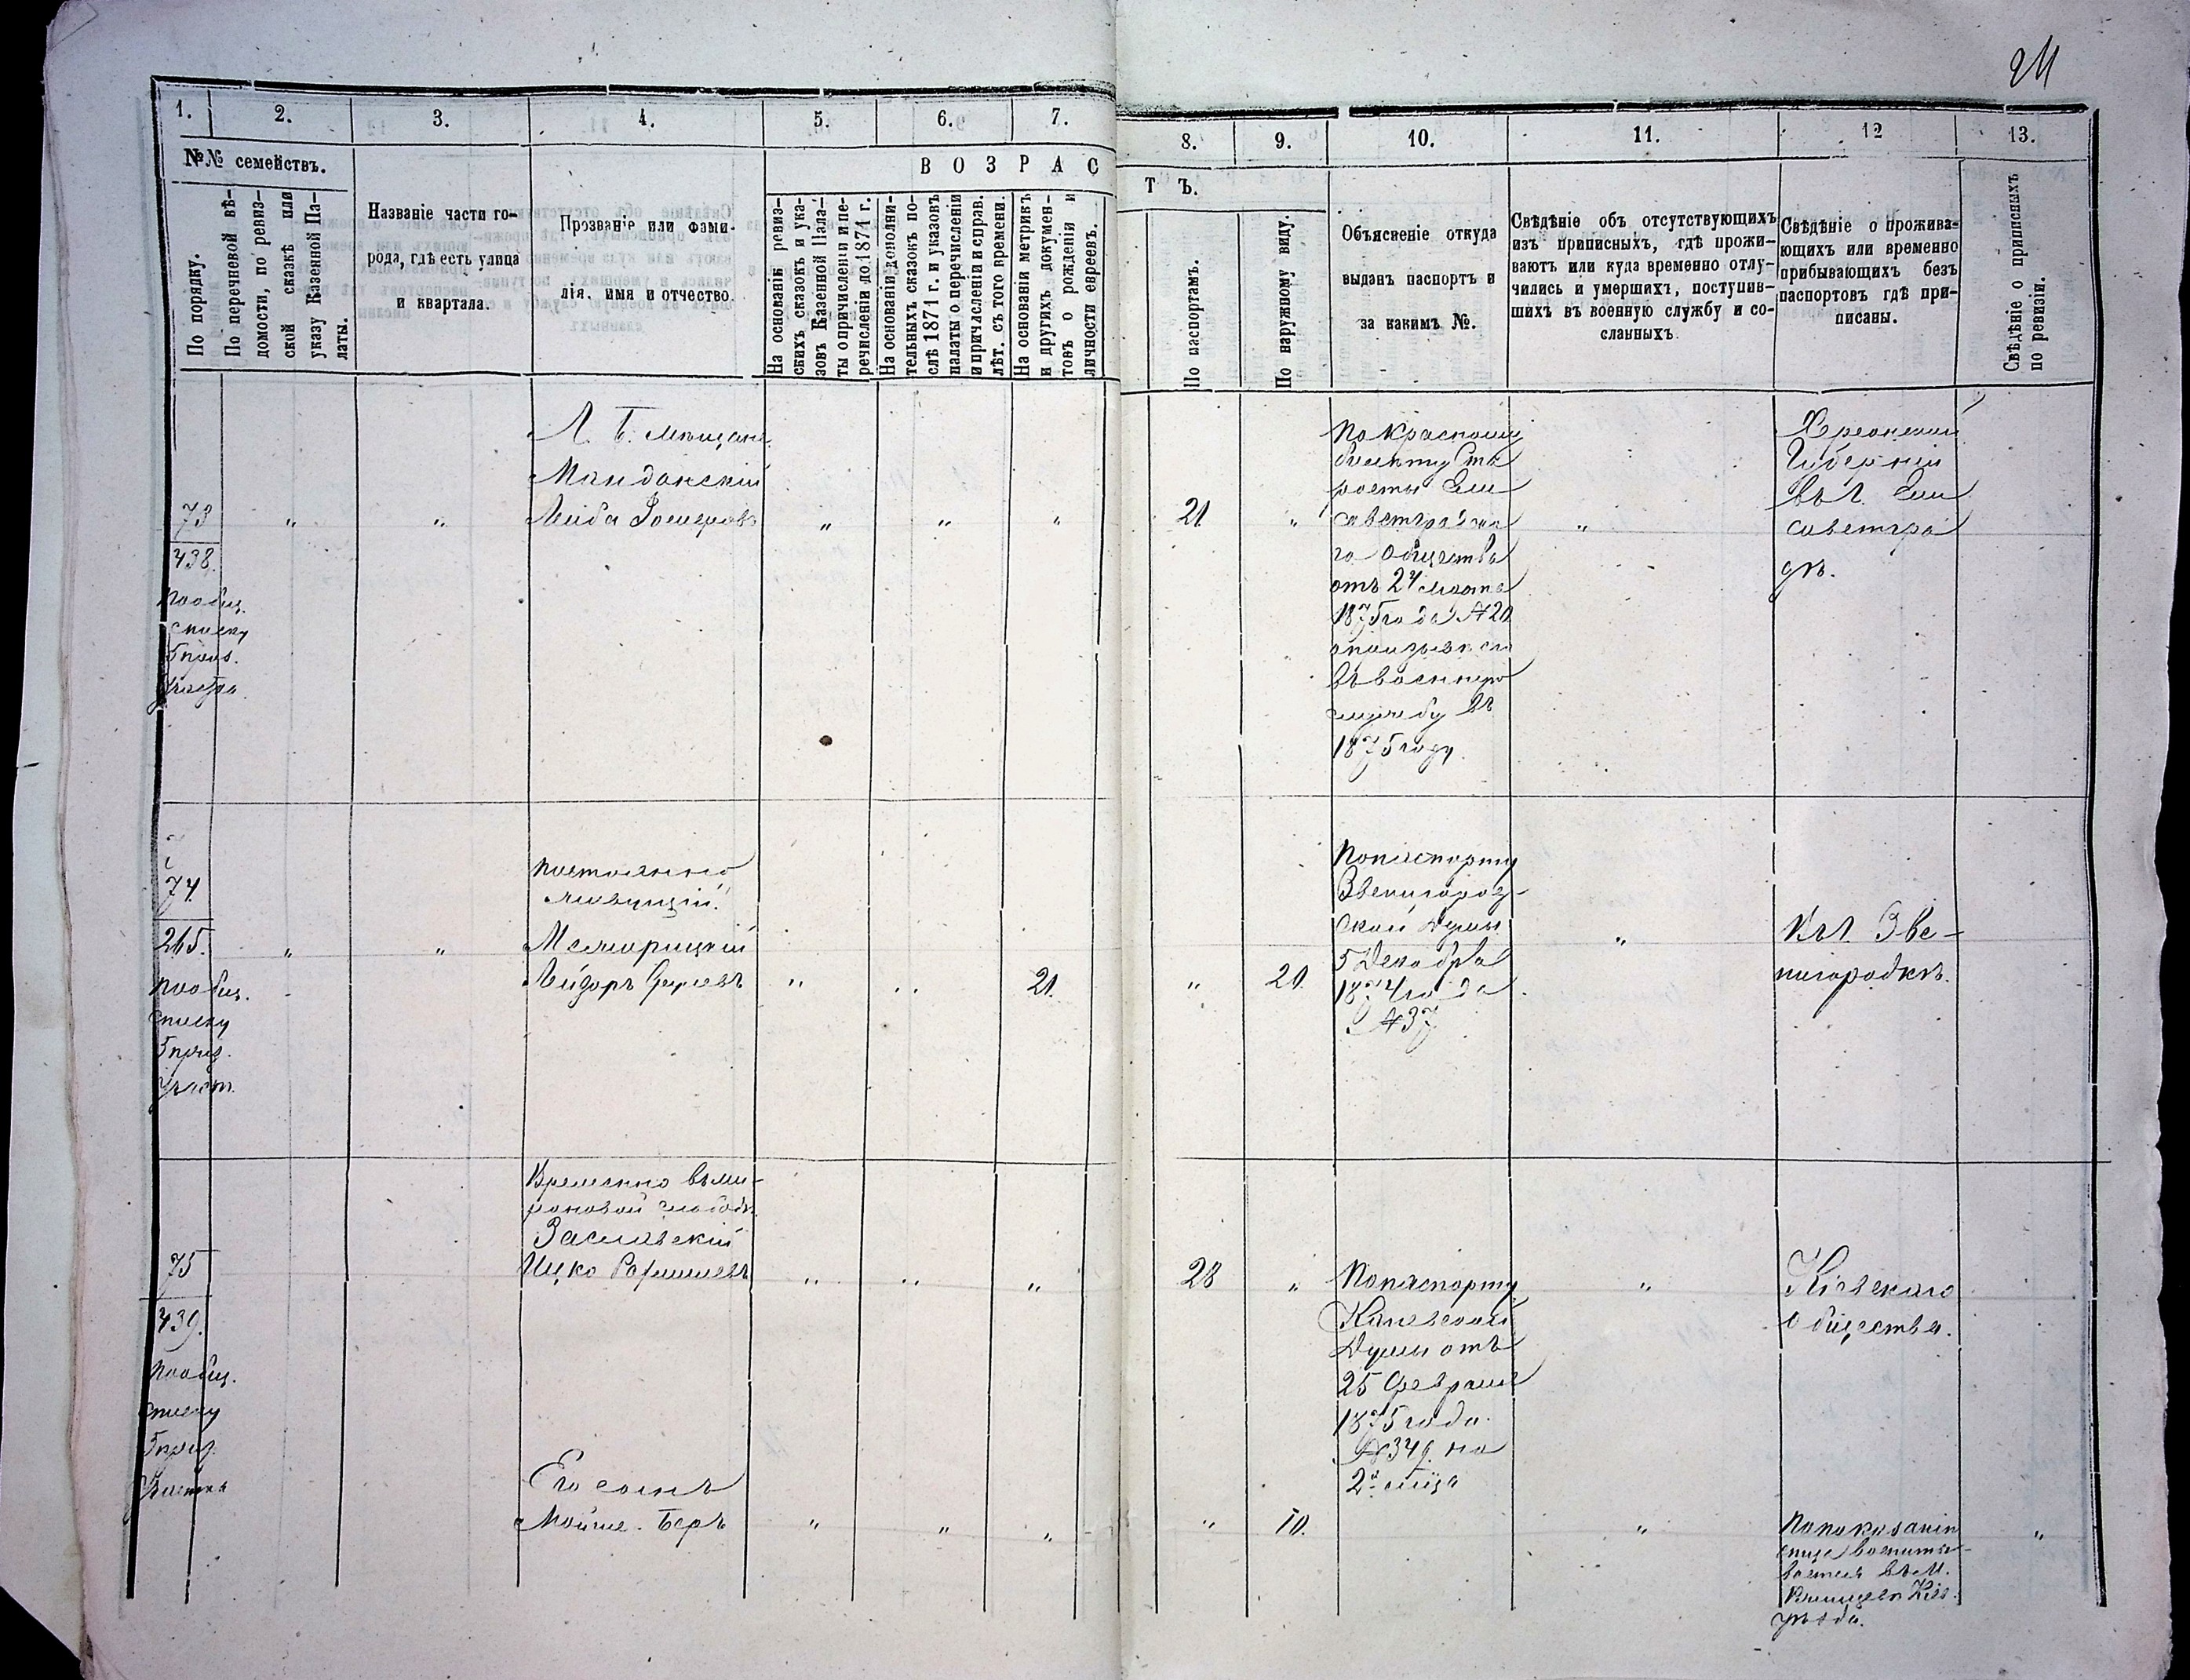 24
1. 2. 3. 4. 5. 6. 7. 8. 9. 10. 11. 12 13.
№№ семействъ.
ВОЗРАСТЪ.
По порядку.
По перечневой вѣ-
домости, по ревиз-
ской сказкѣ или
указу Казенной Па-
латы.
Названіе части го-
рода, гдѣ есть улица
и квартала.
Прозваніе или фами-
лія, имя и отчество.
На основаніи ревиз-
скихъ сказокъ и ука-
зовъ Казенной Пала-
ты о причисленіи и пе-
речисленіи до 1871 г.
На основаніи дополни-
тельныхъ сказокъ по-
слѣ 1871 г. и указовъ
палаты о перечисленіи
и причисленіи справ.
лѣт. съ того времени.
На основаніи метрикъ
и другихъ докумен-
товъ о рожденіи и
личности евреевъ.
По паспортамъ.
По наружному виду.
Объясненіе откуда
выданъ паспортъ и
за какимъ №.
Свѣдѣніе объ отсутствующихъ
изъ приписныхъ, гдѣ прожи-
ваютъ или куда временно отлу-
чились и умершихъ, поступив-
шихъ въ военную службу и со-
сланныхъ.
Свѣдѣніе о прожива-
ющихъ или временно
прибывающихъ безъ
паспортовъ гдѣ при-
писаны.
Свѣдѣніе о приписныхъ
по ревизіи.
73
438.
по общ.
списку
5 приз.
участка
" "
Манданскій
Лейба
" " "
21
"
По Красному
билету Ста
росты Ели
саветградска
го общества
отъ 24 марта
1875 года № 20
въ военную
службу въ
1875 году.
"
Херсонской
Губерніи
въ г. Ели
саветгра
дѣ.
74
265.
по общ.
списку
5 приз.
участ.
" "
постоянно
живущій.
Межирицкій
" "
21.
"
21.
По паспорту
Звенигород-
ской Думы
5 Декабря
1874 года
№ 37
"
Въ г. Зве-
нигородкѣ.
75
439.
по общ.
списку
5 приз.
участка
Временно въ Ми-
роновой слободѣ
Заславскій
Ицко
" " "
28
"
По паспорту
Каневской
Думы отъ
25 Февраля
1875 года
№ 349. на
"
Кіевскаго
общества.
Его сынъ
Мойше-Беръ
" " "
"
10.
"
По показанію
въ М.
уѣзда.
"